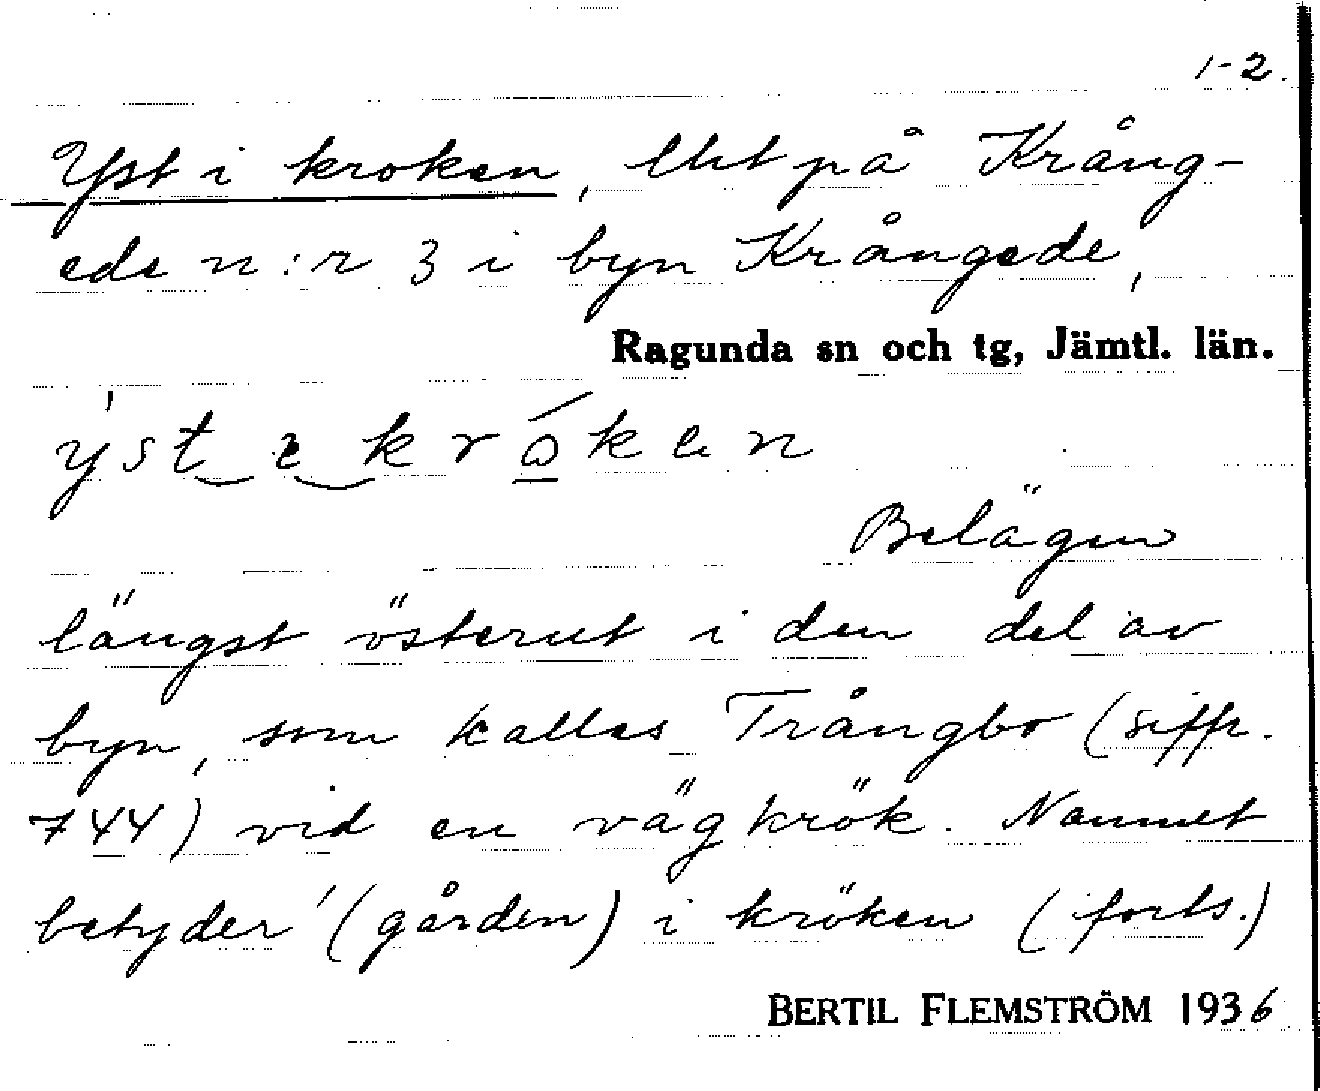 1-2.
Yst i kroken, lht på Kräng-
ede n:r 3 i byn Krångede,
Ragunda sn och tg, Jämtl. län.
Belägen
längst österut i den del av
byn, som kallas Trångbo (siffr.
744) vid en vägkrök. Namnet
betyder '(gården) i kröken (forts.)
BERTIL FLEMSTRÖM 1936